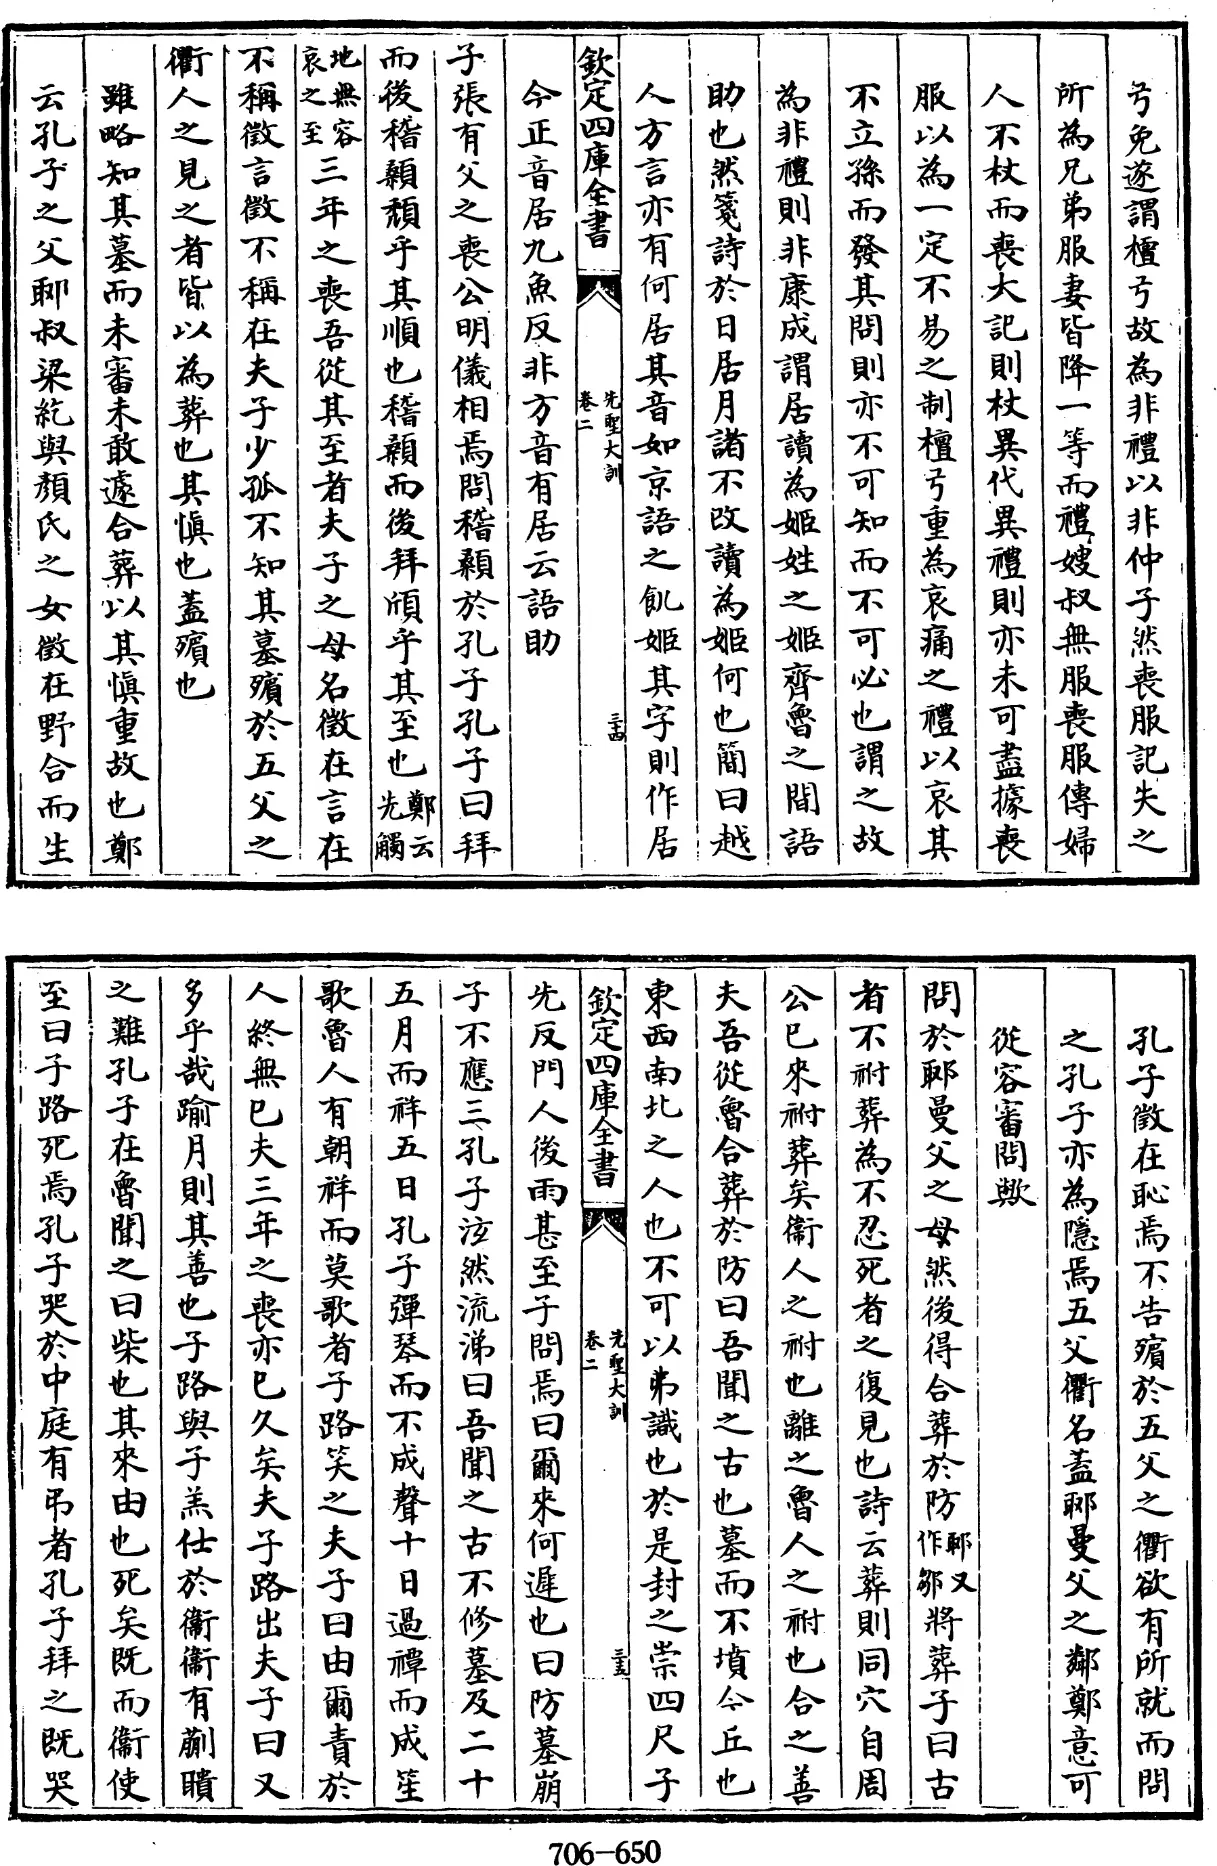 弓免遂謂檀弓故為非禮以非仲子然喪服記失之
所為兄弟服妻皆降一等而禮嫂叔無服喪服傳婦
人不杖而喪大記則杖異代異禮則亦未可盡據喪
服以為一定不易之制檀弓重為哀痛之禮以哀其
不立孫而發其問則亦不可知而不可必也謂之故
為非禮則非康成謂居讀為姬姓之姬齊魯之間語
助也然箋詩於日居月諸不改讀為姬何也簡曰越
人方言亦有何居其音如京語之飢姬其字則作居
欽定四庫全書 先聖大訓 卷二 三十四
今正音居九魚反非方音有居云語助
子張有父之喪公明儀相焉問稽顙於孔子孔子曰拜
而後稽顙頹乎其順也稽顙而後拜頎乎其至也鄭云先觸
地無容哀之至三年之喪吾從其至者夫子之母名徵在言在
不稱徵言徵不稱在夫子少孤不知其墓殯於五父之
衢人之見之者皆以為葬也其慎也蓋殯也
雖略知其墓而未審未敢遽合葬以其慎重故也鄭
云孔子之父郰叔梁紇與顏氏之女徵在野合而生
孔子徵在恥焉不告殯於五父之衢欲有所就而問
之孔子亦為隱焉五父衢名蓋郰曼父之鄰鄭意可
從容審問歟
問於郰曼父之母然後得合葬於防郰又作鄒將葬子曰古
者不祔葬為不忍死者之復見也詩云葬則同穴自周
公已來祔葬矣衞人之祔也離之魯人之祔也合之善
夫吾從魯合葬於防曰吾聞之古也墓而不墳今丘也
東西南北之人也不可以弗識也於是封之崇四尺子
欽定四庫全書 先聖大訓 卷二 三十五
先反門人後雨甚至子問焉曰爾來何遲也曰防墓崩
子不應三孔子泫然流涕曰吾聞之古不修墓及二十
五月而祥五日孔子彈琴而不成聲十日過禫而成笙
歌魯人有朝祥而莫歌者子路笑之夫子曰由爾責於
人終無已夫三年之喪亦已久矣夫子路出夫子曰又
多乎哉踰月則其善也子路與子羔仕於衞衞有蒯聵
之難孔子在魯聞之曰柴也其來由也死矣既而衞使
至曰子路死焉孔子哭於中庭有弔者孔子拜之既哭
706-650